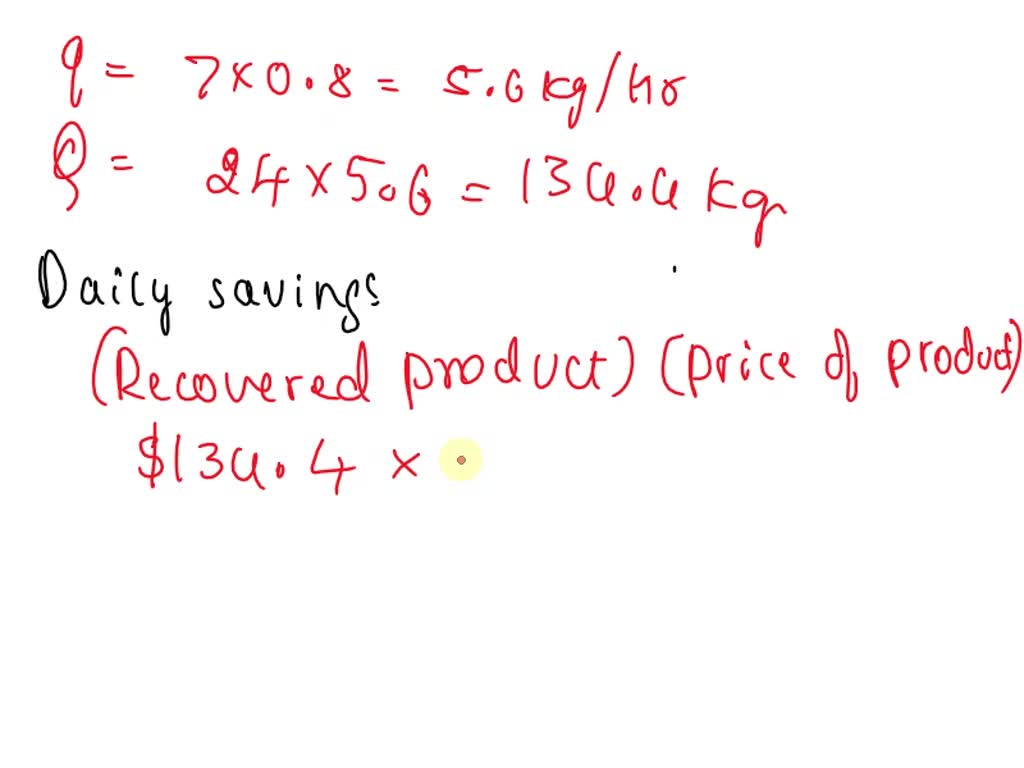 q = 7×0.8 = 5.6 kg/hr
Q = 24×5.6 = 134.4 kg
Daily savings
(Recovered product) (price of product)
$134.4 ×